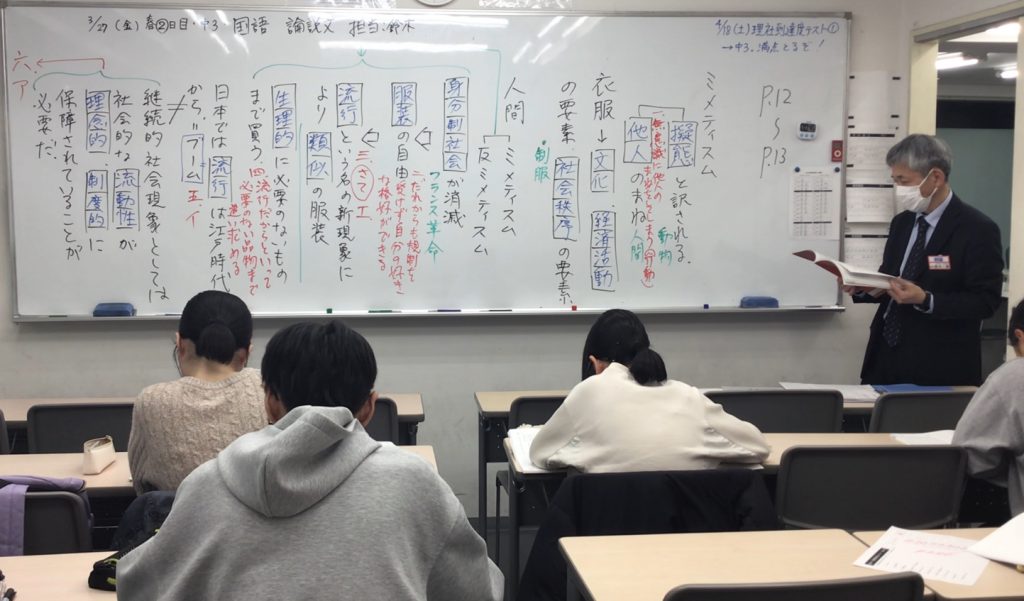 3/27(金)春②日目・中3 国語 論説文 担当:鈴木
4/18(土)理社到達度テスト①
→中3、満点とるぞ!
P.12
〜
P.13
ミメティスム
擬態と訳される。
動物
他人のまねー人間
無意識に他人の
まねをしてしまう(行動)
衣服→文化・経済活動
の要素・社会秩序の要素
・制服
人間
ミメティスム
反ミメティスム
身分制社会が消滅
フランス革命
服装の自由
二、だれからも規制を
受けず自分の好き
な格好ができる
三、さて 工
流行という名の新現象に
より類似の服装
生理的に必要のないもの
まで買う。
四、流行だからといって
必要のない品物まで
追い求める
日本では流行は江戸時代
から=ブーム
五、イ
≠
継続的社会現象としては
社会的な流動性が
理念的・制度的に
保障されていることが
必要だ。
六、ア